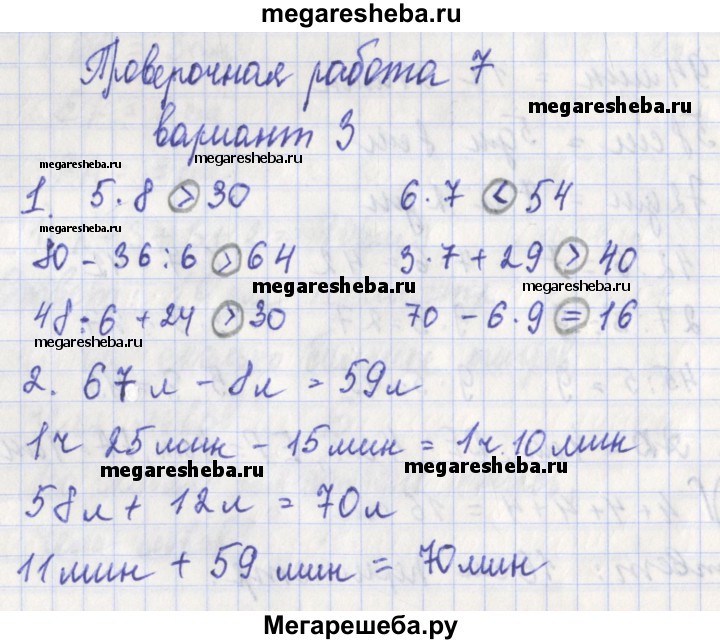 megaresheba.ru
Проверочная работа 7
megaresheba.ru
вариант 3
megaresheba.ru megaresheba.ru
1. 5·8 > 30 6·7 < 54
80 - 36:6 > 64 3·7 + 29 > 40
megaresheba.ru megaresheba.ru
48:6 + 24 > 30 70 - 6·9 = 16
megaresheba.ru
2. 67л - 8л = 59л
1ч 25мин - 15мин = 1ч 10мин
megaresheba.ru megaresheba.ru
58л + 12л = 70л
11мин + 59мин = 70мин
Мегарешеба.ру